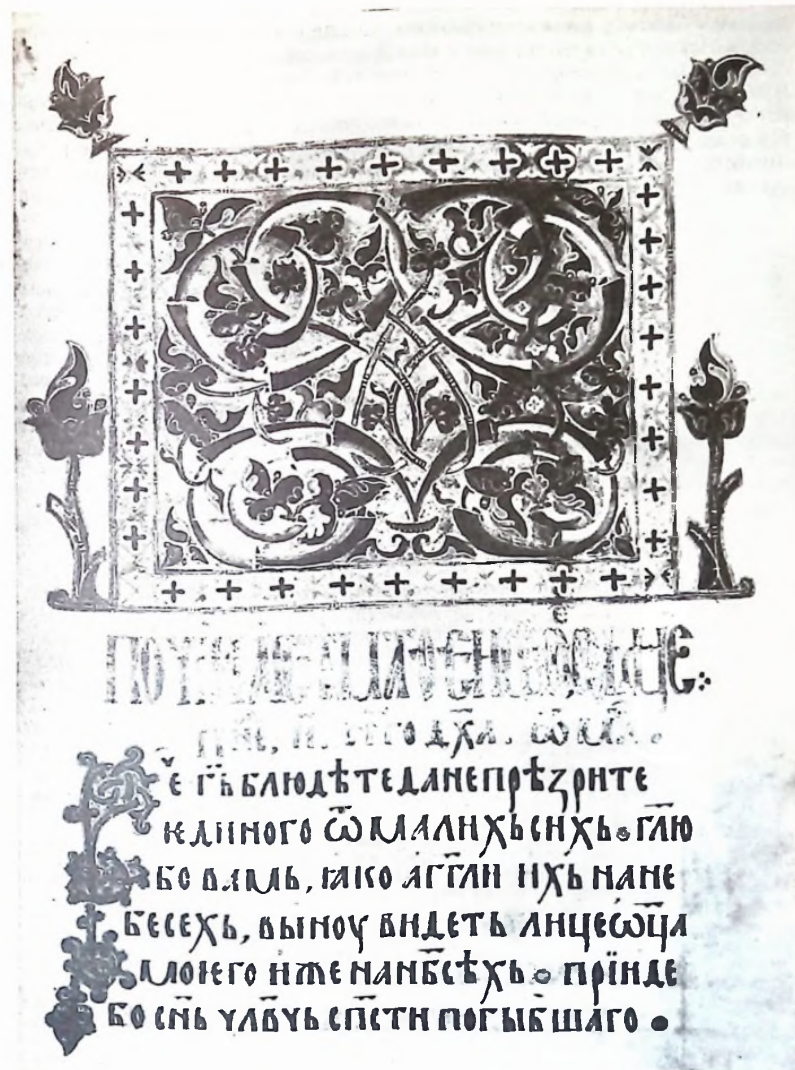 дх҃а. ѿ
Рⷱ҇е г҃ь блюдѣтеданепрѣзрите
ѥдиного ѿмалихьсихь • гл҃ю
бо вамь, ꙗко агг҃ли ихь нане
бесехь, выноу видеть лицеѡц҃а
моѥго иженанб҃сѣхь • прїиде
бо сн҃ь чл҃вчь сп҃сти погыбшаго •